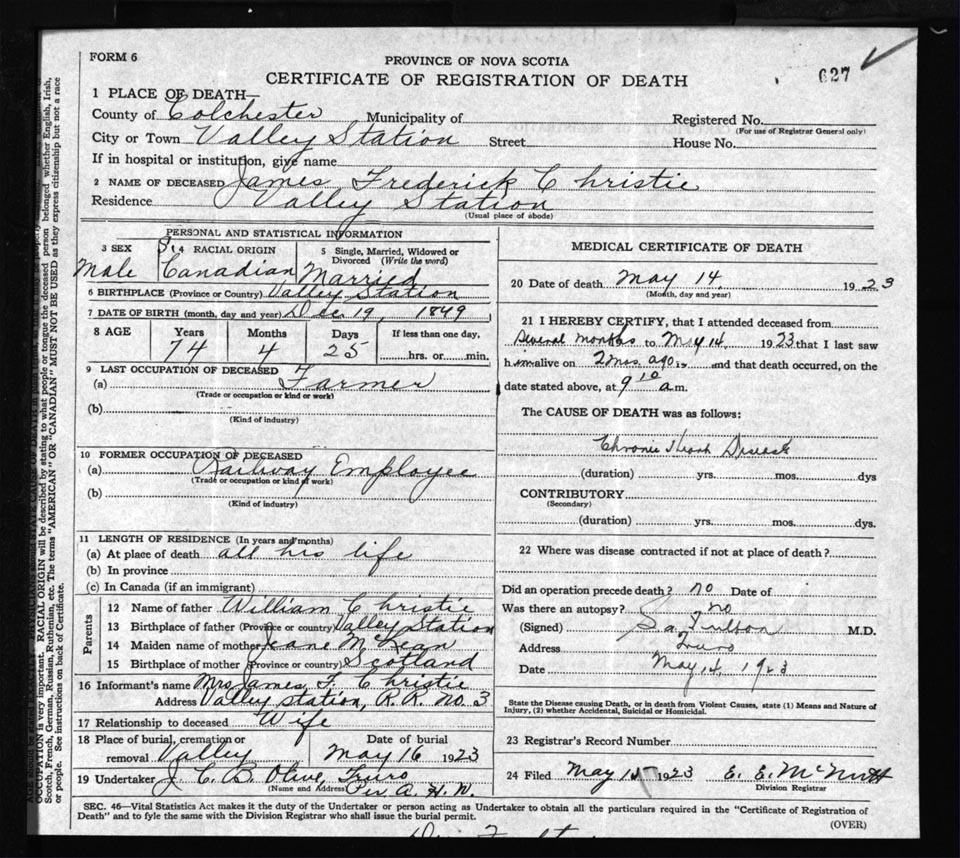 FORM 6
PROVINCE OF NOVA SCOTIA
CERTIFICATE OF REGISTRATION OF DEATH
627
1 PLACE OF DEATH—
County of Colchester Municipality of
Registered No.
(For use of Registrar General only)
City or Town Valley Station Street House No.
If in hospital or institution, give name
2 NAME OF DECEASED James Frederick Christie
Residence Valley Station
(Usual place of abode)
PERSONAL AND STATISTICAL INFORMATION
3 SEX 4 RACIAL ORIGIN 5 Single, Married, Widowed or Divorced (Write the word)
Male Canadian Married
6 BIRTHPLACE (Province or Country) Valley Station
7 DATE OF BIRTH (month, day and year) Dec 19, 1849
8 AGE Years Months Days If less than one day,
74 4 25 hrs. or min.
9 LAST OCCUPATION OF DECEASED
(a) Farmer
(Trade or occupation or kind or work)
(b)
(Kind of industry)
10 FORMER OCCUPATION OF DECEASED
(a) Railway Employee
(Trade or occupation or kind of work)
(b)
(Kind of industry)
11 LENGTH OF RESIDENCE (In years and months)
(a) At place of death all his life
(b) In province
(c) In Canada (if an immigrant)
Parents
12 Name of father William Christie
13 Birthplace of father (Province or country) Valley Station
14 Maiden name of mother Jeane McLean
15 Birthplace of mother (Province or country) Scotland
16 Informant's name Mrs James F. Christie
Address Valley Station, R.R. No. 3
17 Relationship to deceased Wife
18 Place of burial, cremation or removal Valley Date of burial May 16 1923
19 Undertaker J. C. B. Olive, Truro
(Name and Address) Per A. H. W.
MEDICAL CERTIFICATE OF DEATH
20 Date of death May 14 1923
(Month, day and year)
21 I HEREBY CERTIFY, that I attended deceased from
Several months to May 14, 1923 that I last saw
him alive on 2 mos. ago, and that death occurred, on the
date stated above, at 9 10 a.m.
The CAUSE OF DEATH was as follows:
Chronic Heart Disease
(duration) yrs. mos. dys
CONTRIBUTORY
(Secondary)
(duration) yrs. mos. dys.
22 Where was disease contracted if not at place of death?
Did an operation precede death? no Date of
Was there an autopsy? no
(Signed) Fulton M.D.
Address Truro
Date May 14, 1923
State the Disease causing Death, or in death from Violent Causes, state (1) Means and Nature of
Injury, (2) whether Accidental, Suicidal or Homicidal.
23 Registrar's Record Number
24 Filed May 15 1923 E. E. McNutt
Division Registrar
SEC. 46—Vital Statistics Act makes it the duty of the Undertaker or person acting as Undertaker to obtain all the particulars required in the "Certificate of Registration of
Death" and to fyle the same with the Division Registrar who shall issue the burial permit.
(OVER)
OCCUPATION is very important. RACIAL ORIGIN will be described by stating to what people or tongue the deceased person belonged whether English, Irish,
Scotch, French, German, Russian, Ruthenian, etc. The terms "AMERICAN" OR "CANADIAN" MUST NOT BE USED as they express citizenship but not a race
or people. See instructions on back of Certificate.